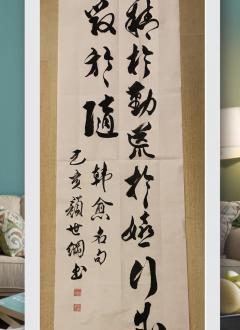 精於勤荒於嬉行成
毀於隨
韓愈名句
己亥顏世綱書